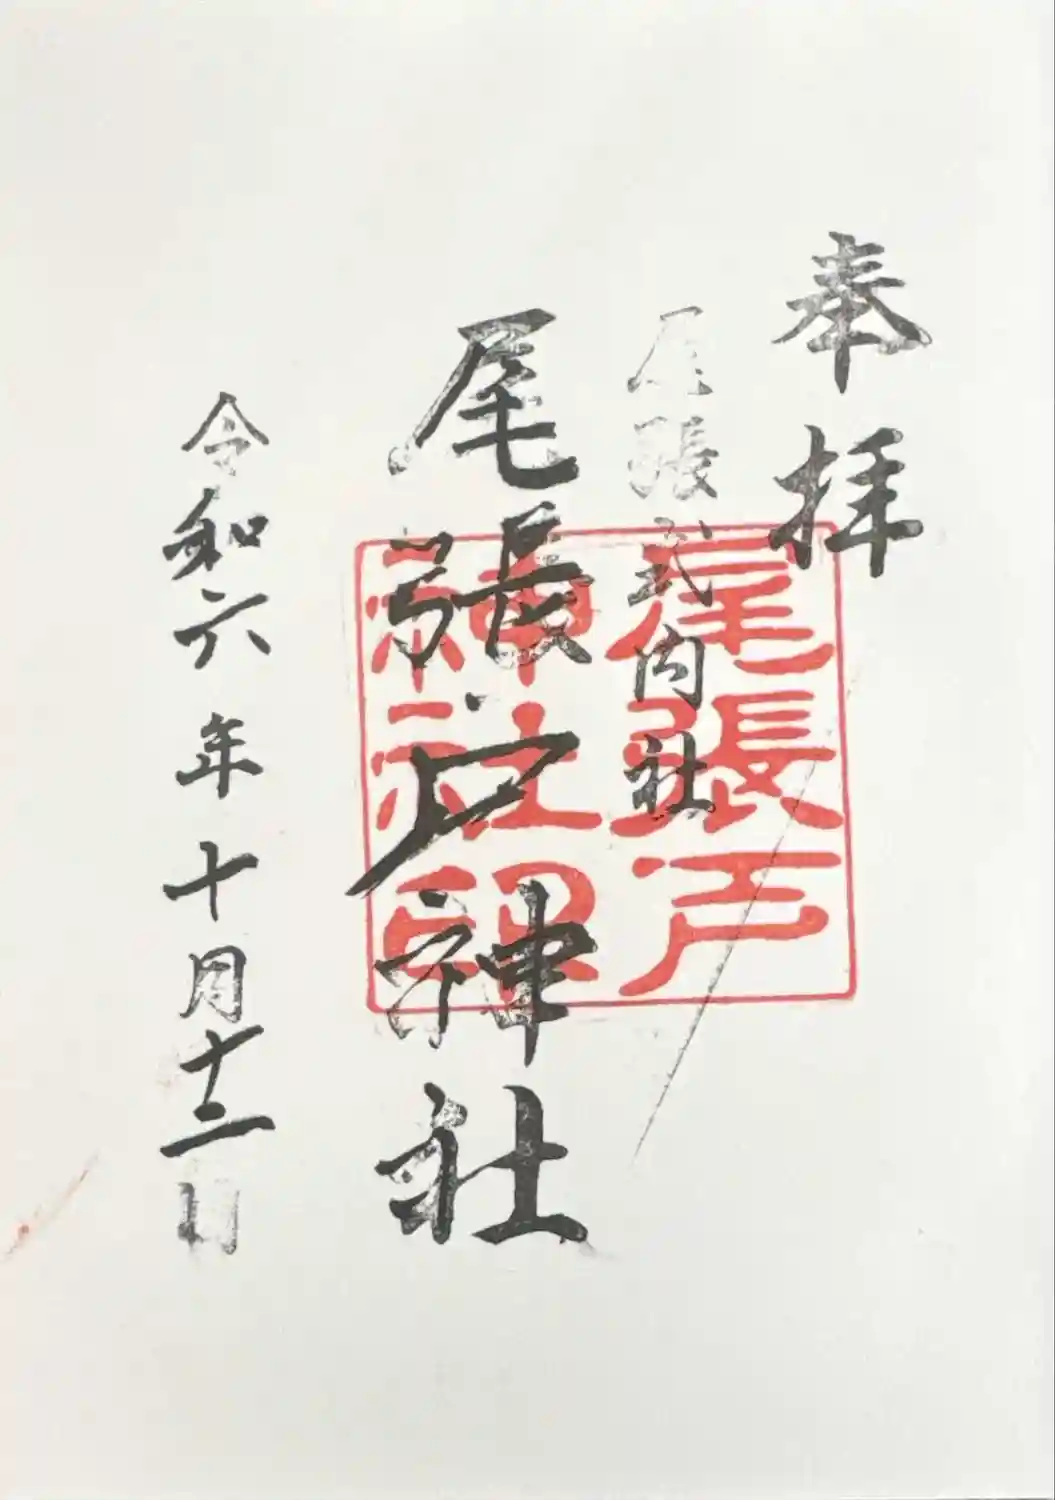 奉拝
尾張式内社
尾張戸神社
尾張戸
神社印
令和六年十月十二日